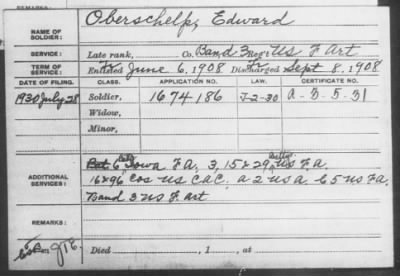 REMARKS:
NAME OF SOLDIER: Oberschelp, Edward
SERVICE: Late rank, Co. Band 3 Reg't US F Art
TERM OF SERVICE: Enlisted Fr June 6, 1908 Discharged Fr Sept 8, 1908
DATE OF FILING. CLASS. APPLICATION NO. LAW. CERTIFICATE NO.
1930 July 28 Soldier, 1674186 J-2-30 A-3-5-31
Widow,
Minor,
ADDITIONAL SERVICES: Bat 6 Iowa F.A. 3, 15 & 29 Battys US F.A.
16 & 96 Cos US C.A.C. a 2 US a. 65 US F.A.
Band 3 US F. art
REMARKS:
Died , 1 , at